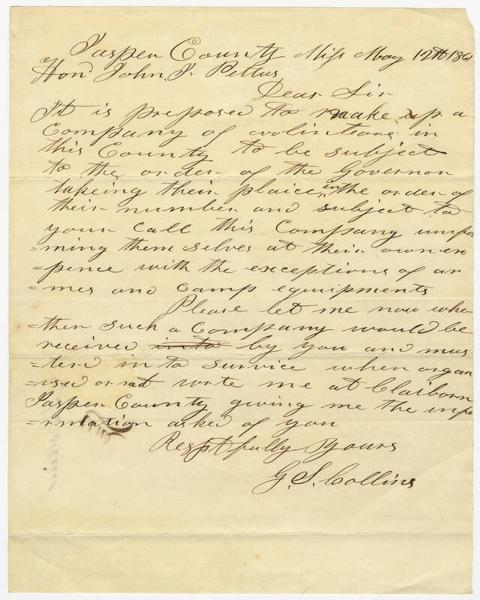 Jasper County Miss May 12th 1861
Hon John J. Pettus
Dear Sir
It is proposed to make up a
Company of volintears in
this County to be subject
to the order of the Governor
takeing their plaice in the order of
their number and subject to
your call this Company unifo
=rming them selves at their own ex
=pence with the exceptions of ar
=mes and camp equipments
Please let me now whe
=ther such a Company would be
received into by you and mus
=terd in to service when organ
=ised or not write me at Claiborn
Jasper County giving me the info
=rmation asked of you
Resptfully Yours
G. S. Collins